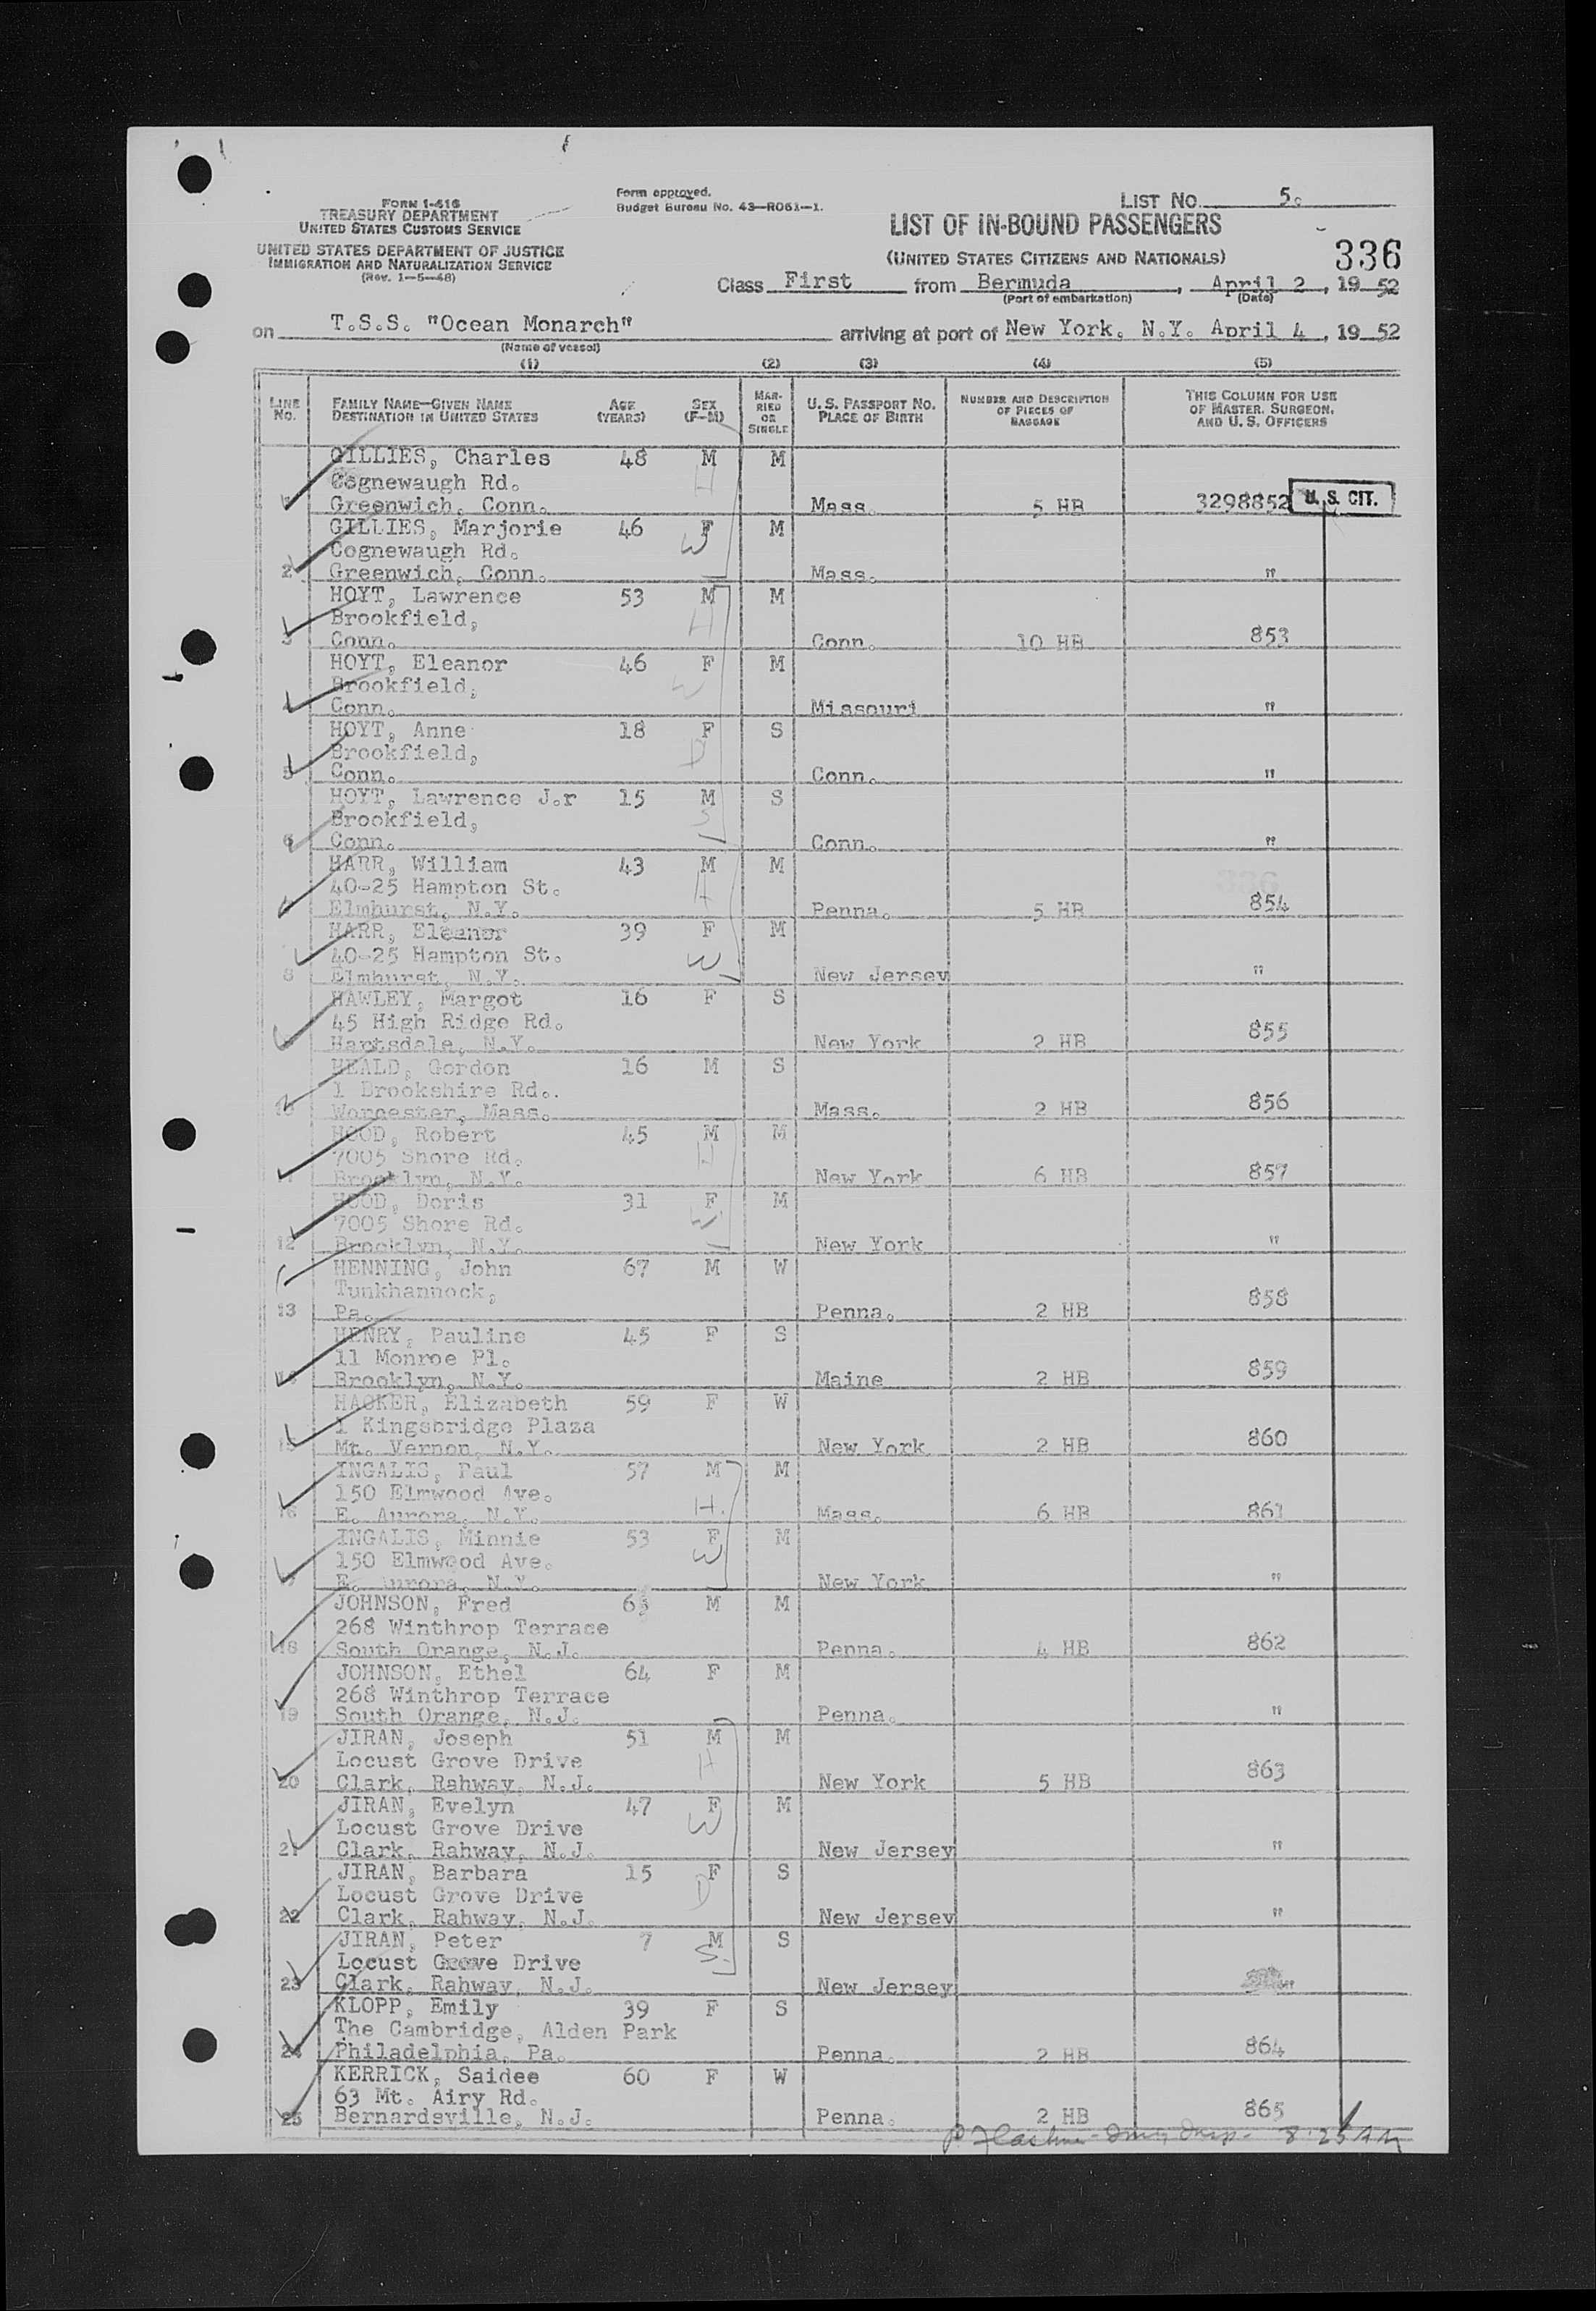 FORM I-416
TREASURY DEPARTMENT
UNITED STATES CUSTOMS SERVICE
UNITED STATES DEPARTMENT OF JUSTICE
IMMIGRATION AND NATURALIZATION SERVICE
(Rev. 1-5-48)
Form approved.
Budget Bureau No. 43-R061-1.
LIST NO. 5.
LIST OF IN-BOUND PASSENGERS
(UNITED STATES CITIZENS AND NATIONALS)
336
Class First from Bermuda, April 2, 1952
(Port of embarkation) (Date)
on T.S.S. "Ocean Monarch" arriving at port of New York, N.Y. April 4, 1952
(Name of vessel)
(1) (2) (3) (4) (5)
LINE NO. FAMILY NAME—GIVEN NAME DESTINATION IN UNITED STATES AGE (YEARS) SEX (F-M) MARRIED OR SINGLE U.S. PASSPORT NO. PLACE OF BIRTH NUMBER AND DESCRIPTION OF PIECES OF BAGGAGE THIS COLUMN FOR USE OF MASTER, SURGEON, AND U.S. OFFICERS
GILLIES, Charles 48 M M
Cognewaugh Rd. H
Greenwich, Conn. Mass. 5 HB 3298852 U.S. CIT.
GILLIES, Marjorie 46 F M
Cognewaugh Rd. W
2 Greenwich, Conn. Mass. "
HOYT, Lawrence 53 M M
Brookfield, H
3 Conn. Conn. 10 HB 853
HOYT, Eleanor 46 F M
Brookfield, W
4 Conn. Missouri "
HOYT, Anne 18 F S
Brookfield, D
5 Conn. Conn. "
HOYT, Lawrence J.r 15 M S
Brookfield, S
6 Conn. Conn. "
HARR, William 43 M M
40-25 Hampton St. H
Elmhurst, N.Y. Penna. 5 HB 854
HARR, Eleanor 39 F M
40-25 Hampton St. W
8 Elmhurst, N.Y. New Jersey "
HAWLEY, Margot 16 F S
45 High Ridge Rd.
Hartsdale, N.Y. New York 2 HB 855
HEALD, Gordon 16 M S
1 Brookshire Rd..
10 Worcester, Mass. Mass. 2 HB 856
HOOD, Robert 45 M M
7005 Shore Rd. H
Brooklyn, N.Y. New York 6 HB 857
HOOD, Doris 31 F M
7005 Shore Rd. W
12 Brooklyn, N.Y. New York "
HENNING, John 67 M W
Tunkhannock,
13 Pa. Penna. 2 HB 858
HENRY, Pauline 45 F S
11 Monroe Pl.
14 Brooklyn, N.Y. Maine 2 HB 859
HACKER, Elizabeth 59 F W
1 Kingsbridge Plaza
15 Mt. Vernon, N.Y. New York 2 HB 860
INGALIS, Paul 57 M M
150 Elmwood Ave. H.
16 E. Aurora, N.Y. Mass. 6 HB 861
INGALIS, Minnie 53 F M
150 Elmwood Ave. W
E. Aurora, N.Y. New York "
JOHNSON, Fred 63 M M
268 Winthrop Terrace
18 South Orange, N.J. Penna. 4 HB 862
JOHNSON, Ethel 64 F M
268 Winthrop Terrace
19 South Orange, N.J. Penna. "
JIRAN, Joseph 51 M M
Locust Grove Drive H
20 Clark, Rahway, N.J. New York 5 HB 863
JIRAN, Evelyn 47 F M
Locust Grove Drive W
21 Clark, Rahway, N.J. New Jersey "
JIRAN, Barbara 15 F S
Locust Grove Drive D
22 Clark, Rahway, N.J. New Jersey "
JIRAN, Peter 7 M S
Locust Grove Drive S.
23 Clark, Rahway, N.J. New Jersey "
KLOPP, Emily 39 F S
The Cambridge, Alden Park
24 Philadelphia, Pa. Penna. 2 HB 864
KERRICK, Saidee 60 F W
63 Mt. Airy Rd.
25 Bernardsville, N.J. Penna. 2 HB 865
8:25 AM